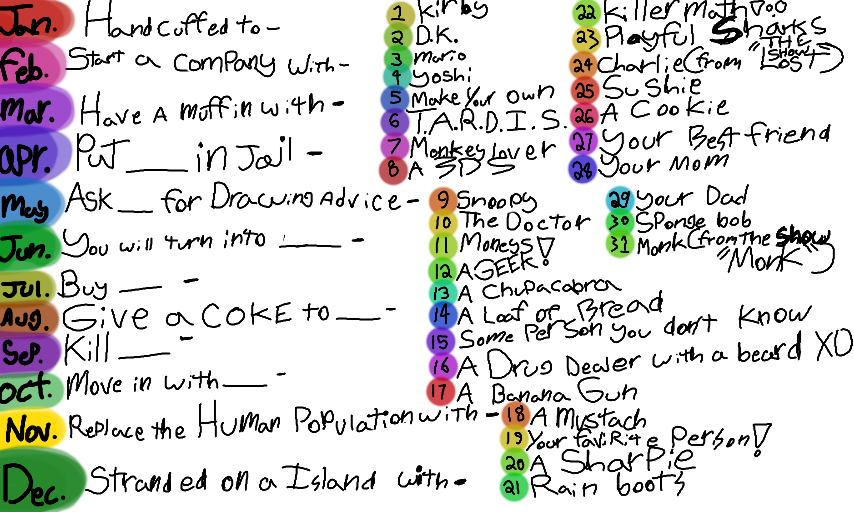 Jan. Handcuffed to -
Feb. Start a company with -
Mar. Have A muffin with -
Apr. Put ___ in Jail -
May Ask ___ for Drawing Advice -
Jun. You will turn into ___ -
Jul. Buy ___ -
Aug. Give a COKE to ___ -
Sep. Kill ___ -
Oct. Move in with ___ -
Nov. Replace the Human Population with -
Dec. Stranded on a Island with -
1 Kirby
2 D.K.
3 mario
4 yoshi
5 Make your own
6 T.A.R.D.I.S.
7 Monkey Lover
8 A SDS
9 Snoopy
10 The Doctor
11 Moneys!
12 A GEEK!
13 A Chupacabra
14 A Loaf of Bread
15 Some Person you don't know
16 A Drug Dealer with a beard XD
17 A Banana Gun
18 A Mystach
19 Your favirite Person!
20 A Sharpie
21 Rain boots
22 Killer Math!
23 Playful Sharks
24 Charlie (from "THE show LOST")
25 Sushie
26 A Cookie
27 Your Best friend
28 Your Mom
29 Your Dad
30 Sponge bob
31 Monk (from the show
"Monk")